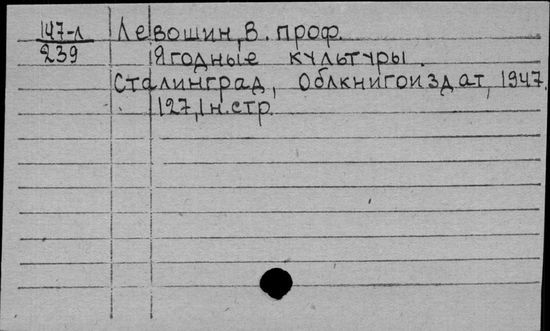 147-л Левошин, В. проф.
239 Ягодные культуры.
Сталинград, Облкнигоиздат, 1947.
127, 1 н. стр.